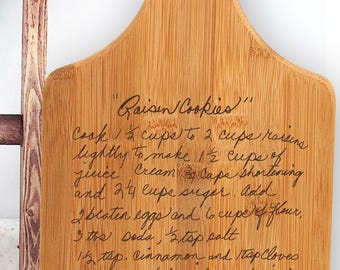 "Raisen Cookies"
Cook 1 ½ cups to 2 cups raisins
lightly to make 1 ½ cups of
juice Cream ¾ cups shortening
and 2 ¼ cups sugar. Add
2 beaten eggs and 6 cups of flour,
3 tbs soda, ½ tsp salt
1 ½ tsp. cinnamon and 1 tsp cloves